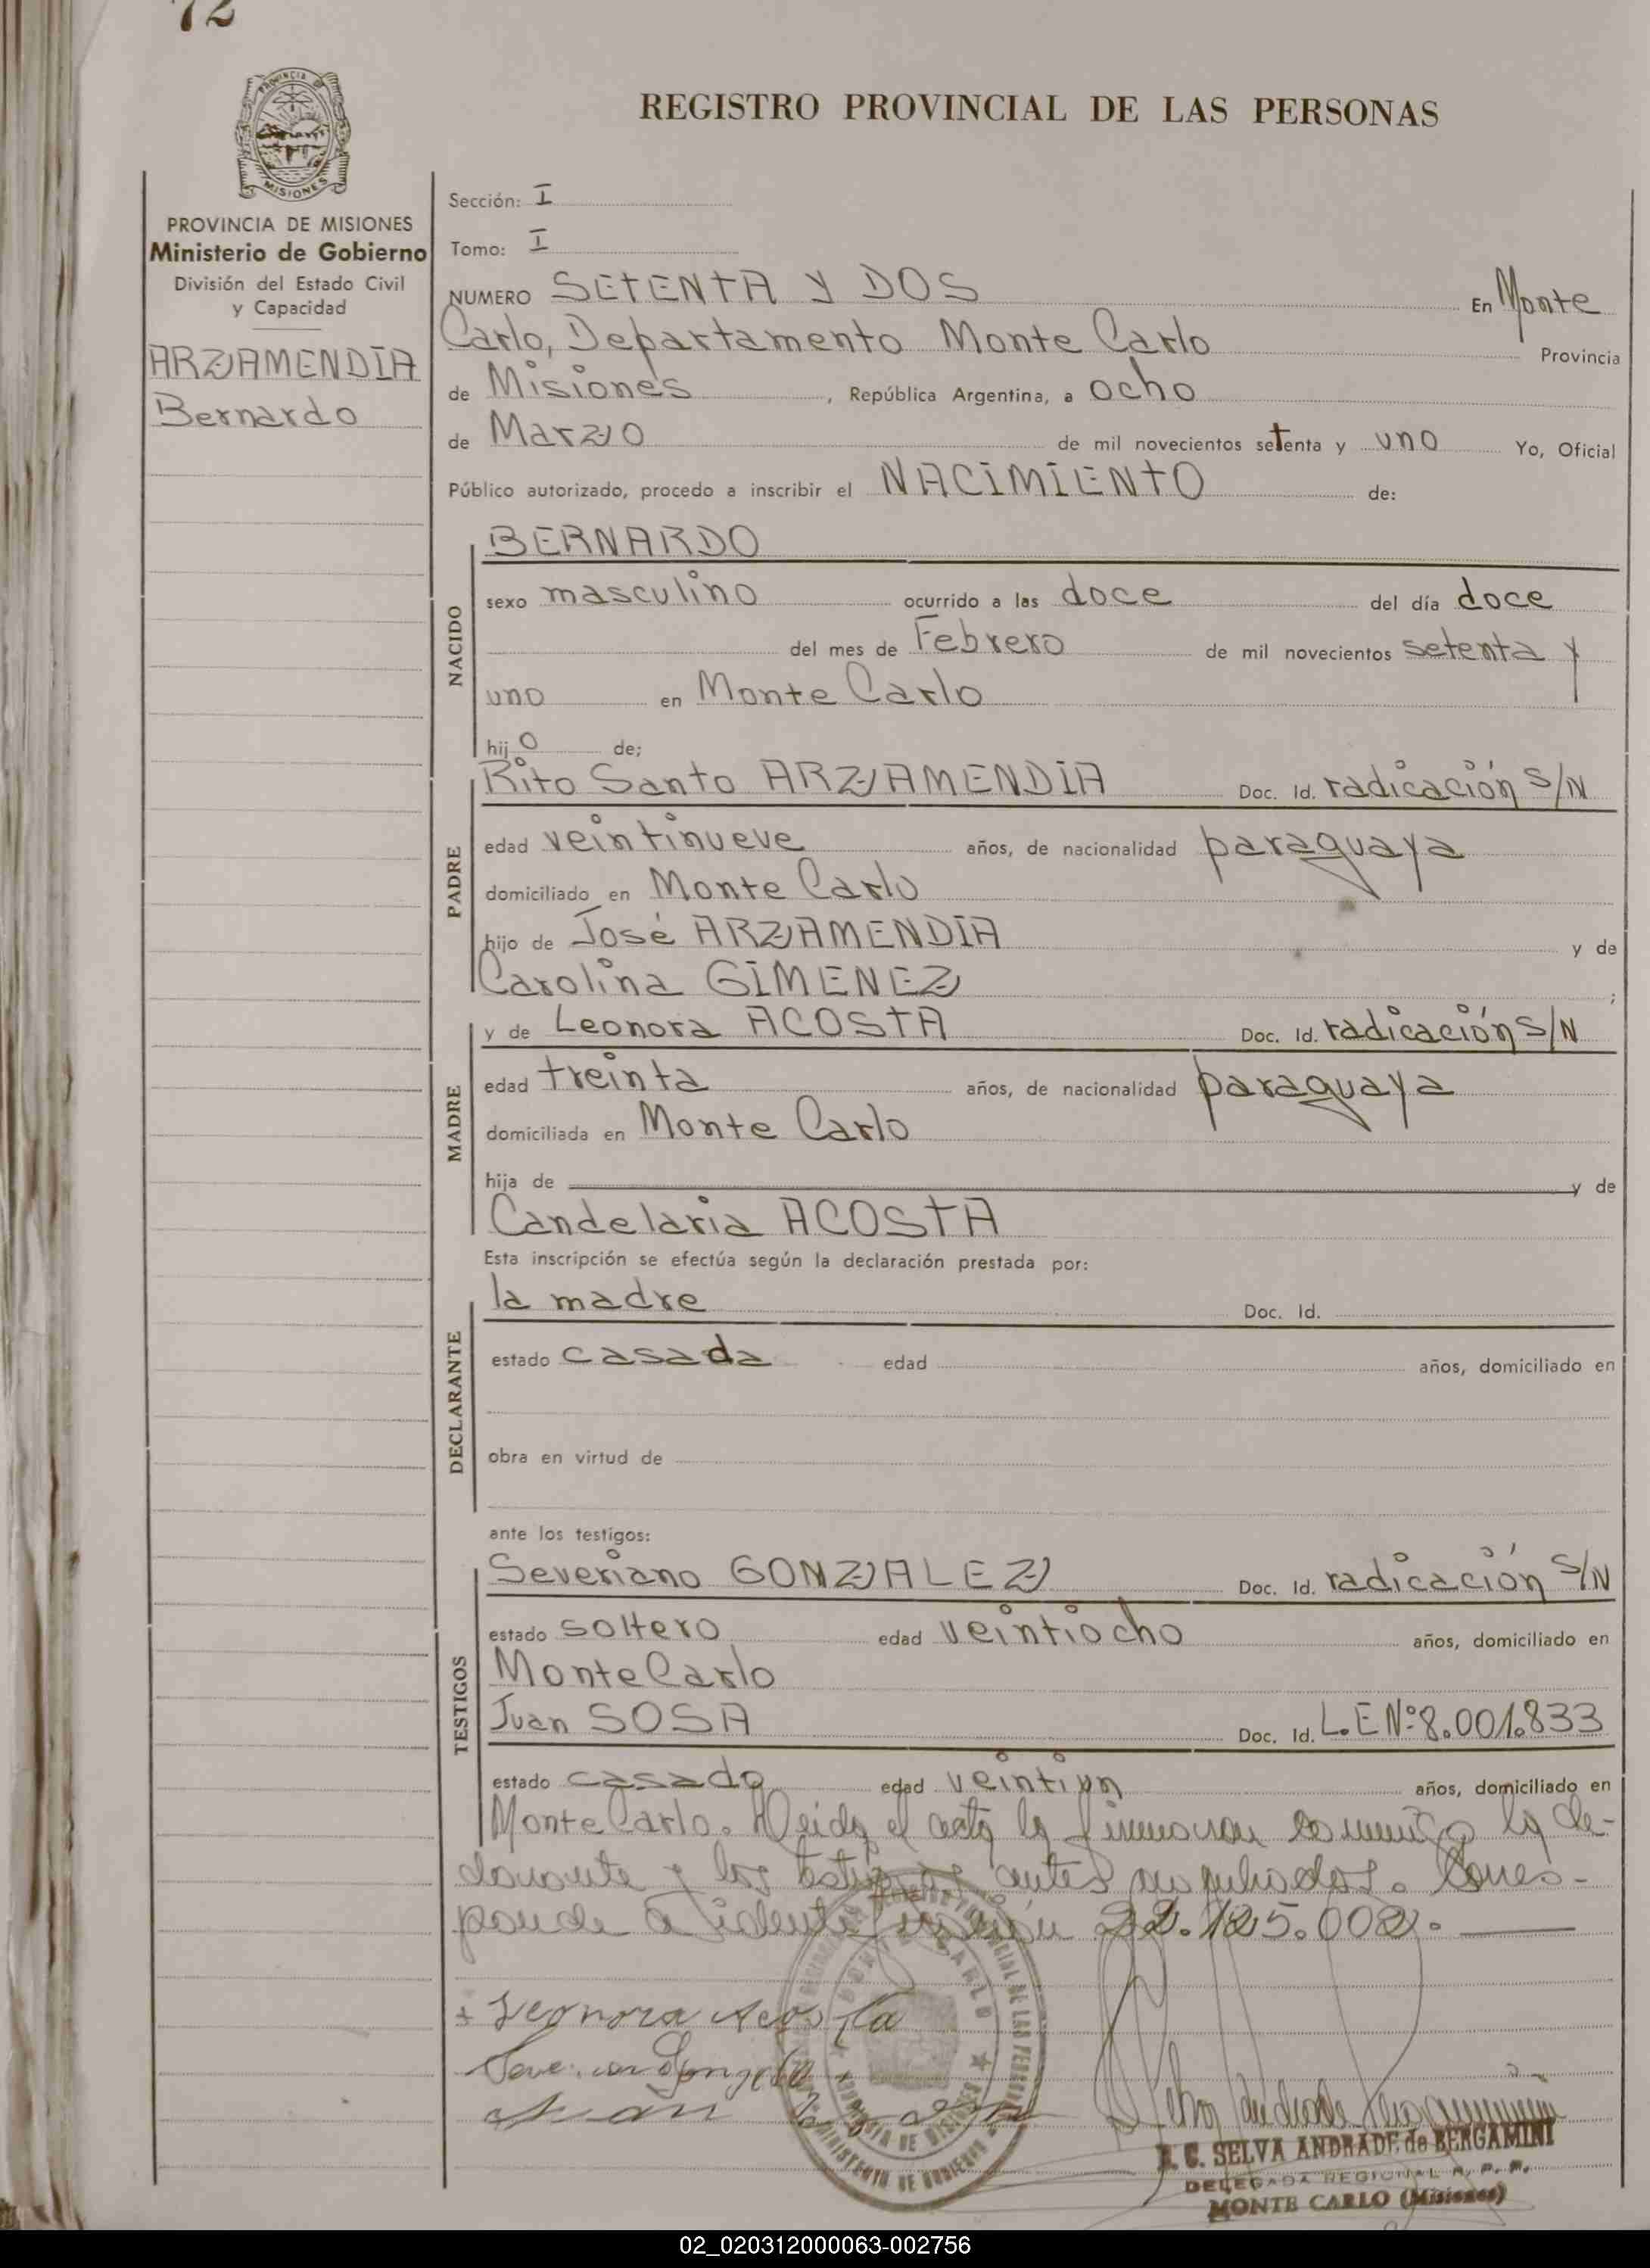 72
PROVINCIA DE
MISIONES
REGISTRO PROVINCIAL DE LAS PERSONAS
PROVINCIA DE MISIONES
Ministerio de Gobierno
División del Estado Civil
y Capacidad
ARZAMENDIA
Bernardo
Sección: I
Tomo: I
NUMERO SETENTA Y DOS En Monte
Carlo, Departamento Monte Carlo Provincia
de Misiones, República Argentina, a ocho
de Marzo de mil novecientos setenta y uno Yo, Oficial
Público autorizado, procedo a inscribir el NACIMIENTO de:
NACIDO
BERNARDO
sexo masculino ocurrido a las doce del día doce
del mes de Febrero de mil novecientos setenta y
uno en Monte Carlo
hijo de;
PADRE
Rito Santo ARZAMENDIA Doc. Id. radicación S/N
edad veintinueve años, de nacionalidad paraguaya
domiciliado en Monte Carlo
hijo de José ARZAMENDIA y de
Carolina GIMENEZ;
MADRE
y de Leonora ACOSTA Doc. Id. radicación S/N
edad treinta años, de nacionalidad paraguaya
domiciliada en Monte Carlo
hija de y de
Candelaria ACOSTA
Esta inscripción se efectúa según la declaración prestada por:
DECLARANTE
la madre Doc. Id.
estado casada edad años, domiciliado en
obra en virtud de
ante los testigos:
TESTIGOS
Severiano GONZALEZ Doc. Id. radicación S/N
estado soltero edad veintiocho años, domiciliado en
Monte Carlo
Juan SOSA Doc. Id. L.E Nº 8.001.833
estado casado edad veintiun años, domiciliado en
Monte Carlo. Leida el acta la firmaron conmigo la de-
clarante y los testigos antes nombrados. Corres-
ponde a identificación 22.125.002.
Leonora Acosta
Juan Sosa
SELVA ANDRADE de BERGAMINI
DELEGADA REGIONAL R. P. P.
MONTE CARLO (Misiones)
02_020312000063-002756